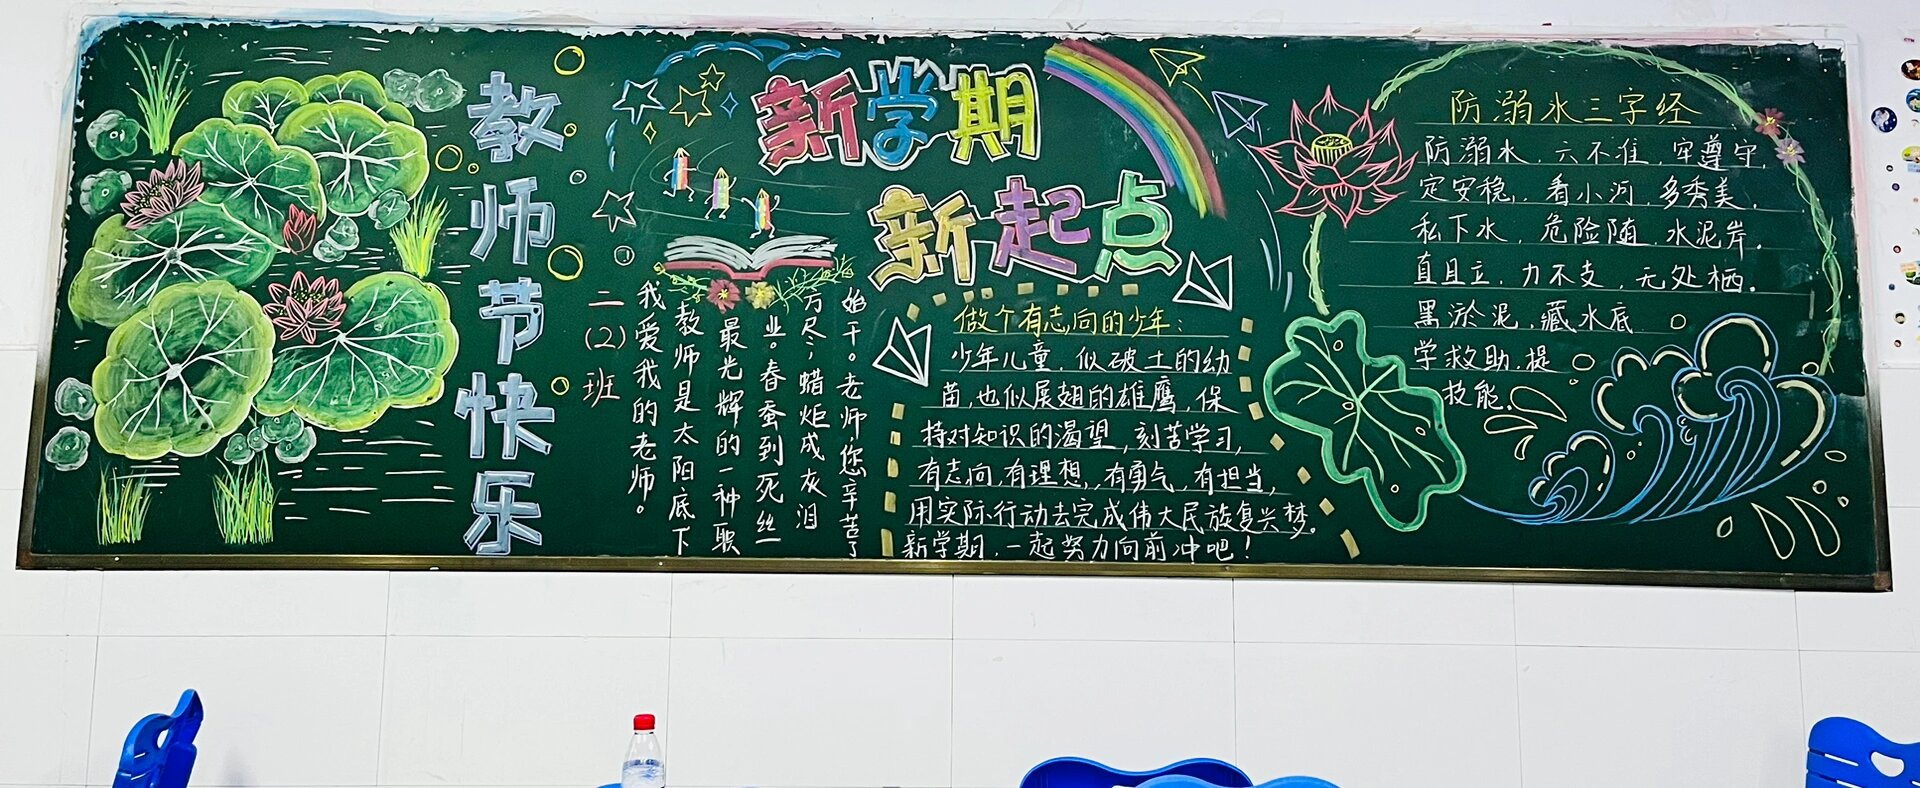 教师节快乐
二(2)班
我爱我的老师。
教师是太阳底下
最光辉的一种职
业。春蚕到死丝
方尽，蜡炬成灰泪
始干。老师您辛苦了
新学期
新起点
做个有志向的少年：
少年儿童，似破土的幼
苗，也似展翅的雄鹰，保
持对知识的渴望，刻苦学习，
有志向，有理想，有勇气，有担当，
用实际行动去完成伟大民族复兴梦。
新学期，一起努力向前冲吧！
防溺水三字经
防溺水，六不准，牢遵守，
定安稳，看小河，多秀美，
私下水，危险随，水泥岸。
直且立，力不支，无处栖。
黑淤泥，藏水底
学救助，提
技能。